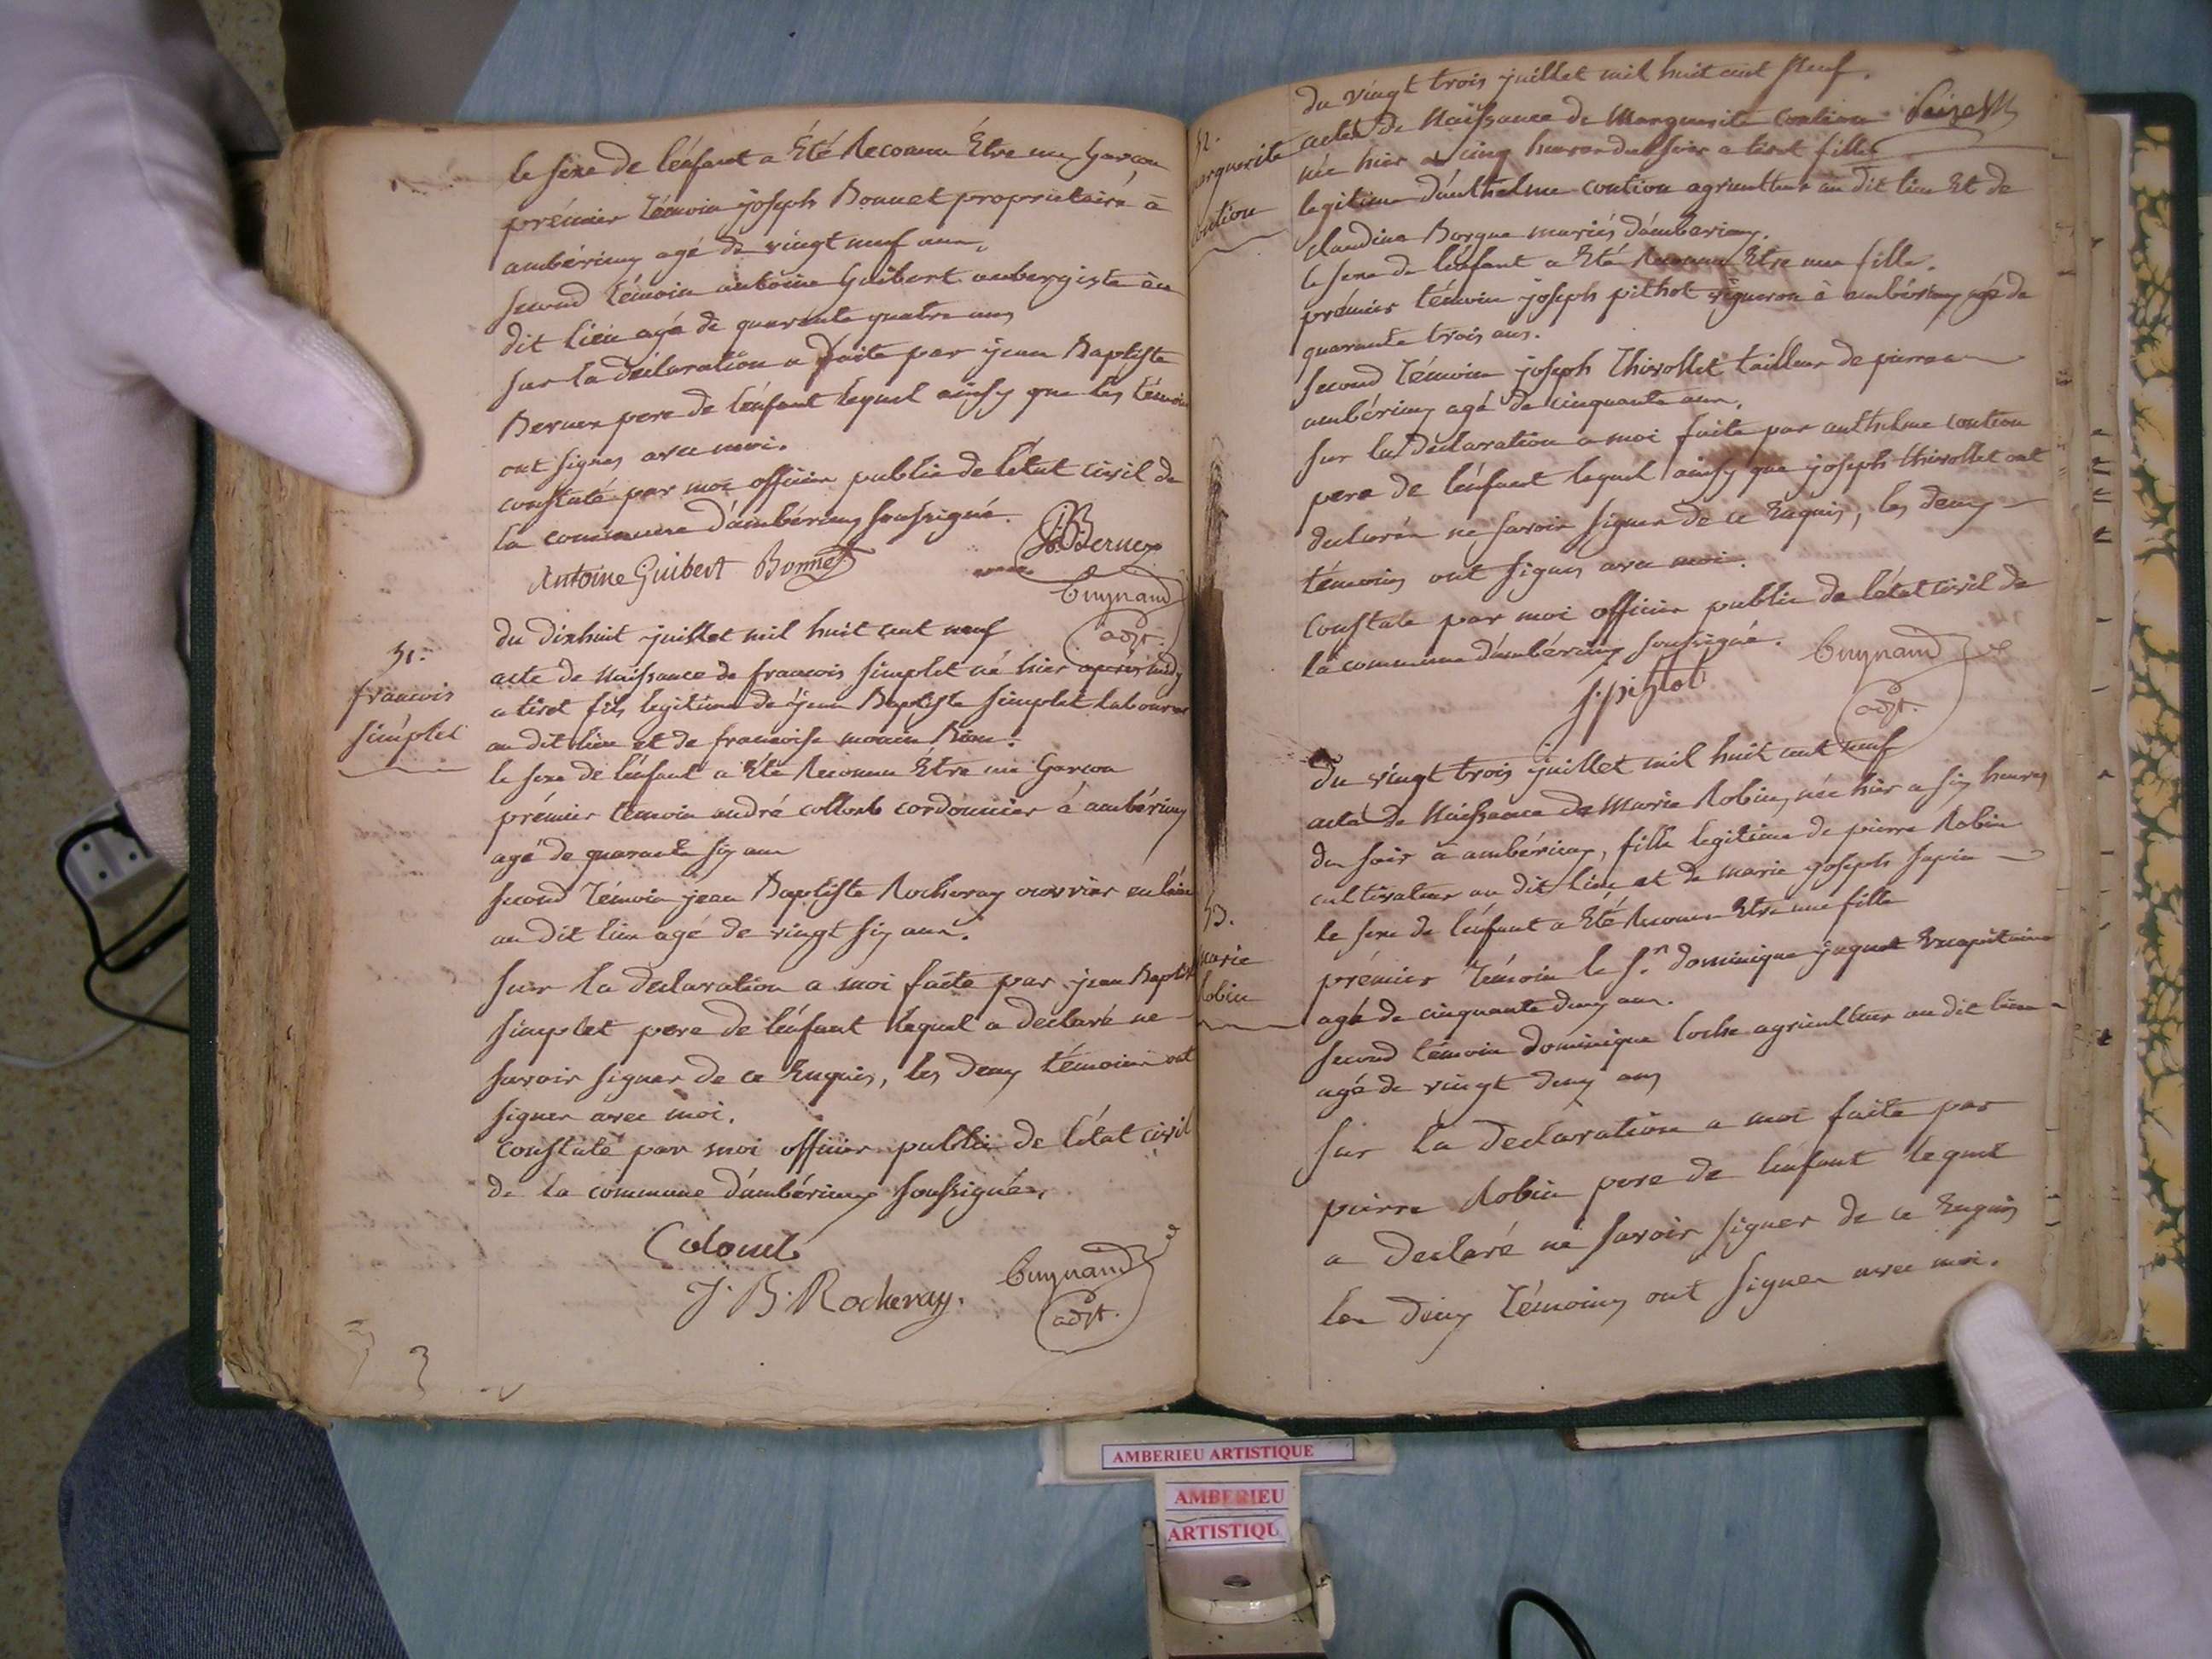 le sexe de l'énfant a Été Reconnu Être un Garçon
prémier témoin joseph Bonnet propriétaire à
ambérieux agé de vingt neuf ans,
second témoin antoine Guibert aubergiste au
dit lieu agé de quarante quatre ans
sur la déclaration a faite par jean Baptiste
Bernex pere de l'énfant lequel ainsy que les témoin
ont signés avec moi.
constaté par moi officier public de l'état civil de
la commune d'ambérieux soussigné.
Antoine Guibert Bonnet JBBernex
Guynand
adjt.
51.
francois
simplet
du dixhuit juillet mil huit cent neuf
acte de Naissance de francois simplet né hier après midy
a tiret fils legitime de jean Baptiste simplet laboureur
au dit lieu et de francoise
le sexe de l'énfant a Été Reconnu Être un Garçon
prémier témoin andré collomb cordonnier à ambérieux
agé de quarante six ans
second témoin jean Baptiste Rocheray ouvrier en laine
au dit lieu agé de vingt six ans.
sur la déclaration a moi faite par jean Baptist
simplet pere de l'énfant lequel a déclaré ne
savoir signer de ce Enquis, les deux témoins ont
signer avec moi.
constaté par moi officier public de l'état civil
de la commune d'ambérieux soussigné.
Colomb
J. B. Rocheray. Guynand
adjt.
52.
marguerite
contion
du vingt trois juillet mil huit cent neuf.
acte de Naissance de Marguerite contion
née hier a cinq heures du soir a tiret fille
legitime d'anthelme contion agriculteur au dit lieu Et de
claudine Borgue mariés d'ambérieux.
le sexe de l'énfant a Été Reconnu Etre une fille.
prémier témoin joseph pithot vigneron à ambérieux agé de
quarante trois ans.
second témoin joseph Thivollet tailleur de pierre a
ambérieux agé de cinquante ans.
sur la déclaration a moi faite par anthelme contion
pere de l'énfant lequel ainsy que joseph thivollet ont
declarés ne savoir signer de ce Enquis, les deux
témoins ont signés avec moi.
constaté par moi officier public de l'état civil de
la commune d'ambérieux soussigné. Guynand
J. pithot adjt.
53.
marie
Robin
du vingt trois juillet mil huit cent neuf
acte de Naissance de Marie Robin, née hier a six heures
du soir à ambérieux, fille legitime de pierre Robin
cultivateur au dit lieu et de marie joseph sapin
le sexe de l'énfant a Été Reconnu Etre une fille
prémier témoin le s.r dominique juquet Excapitaine
agé de cinquante deux ans.
second témoin dominique loche agriculteur au dit lieu
agé de vingt deux ans
sur la declaration a moi faite par
pierre Robin pere de l'enfant lequel
a declaré ne savoir signer de ce Enquis
les deux témoins ont signer avec moi.
AMBERIEU ARTISTIQUE
AMBERIEU
ARTISTIQU